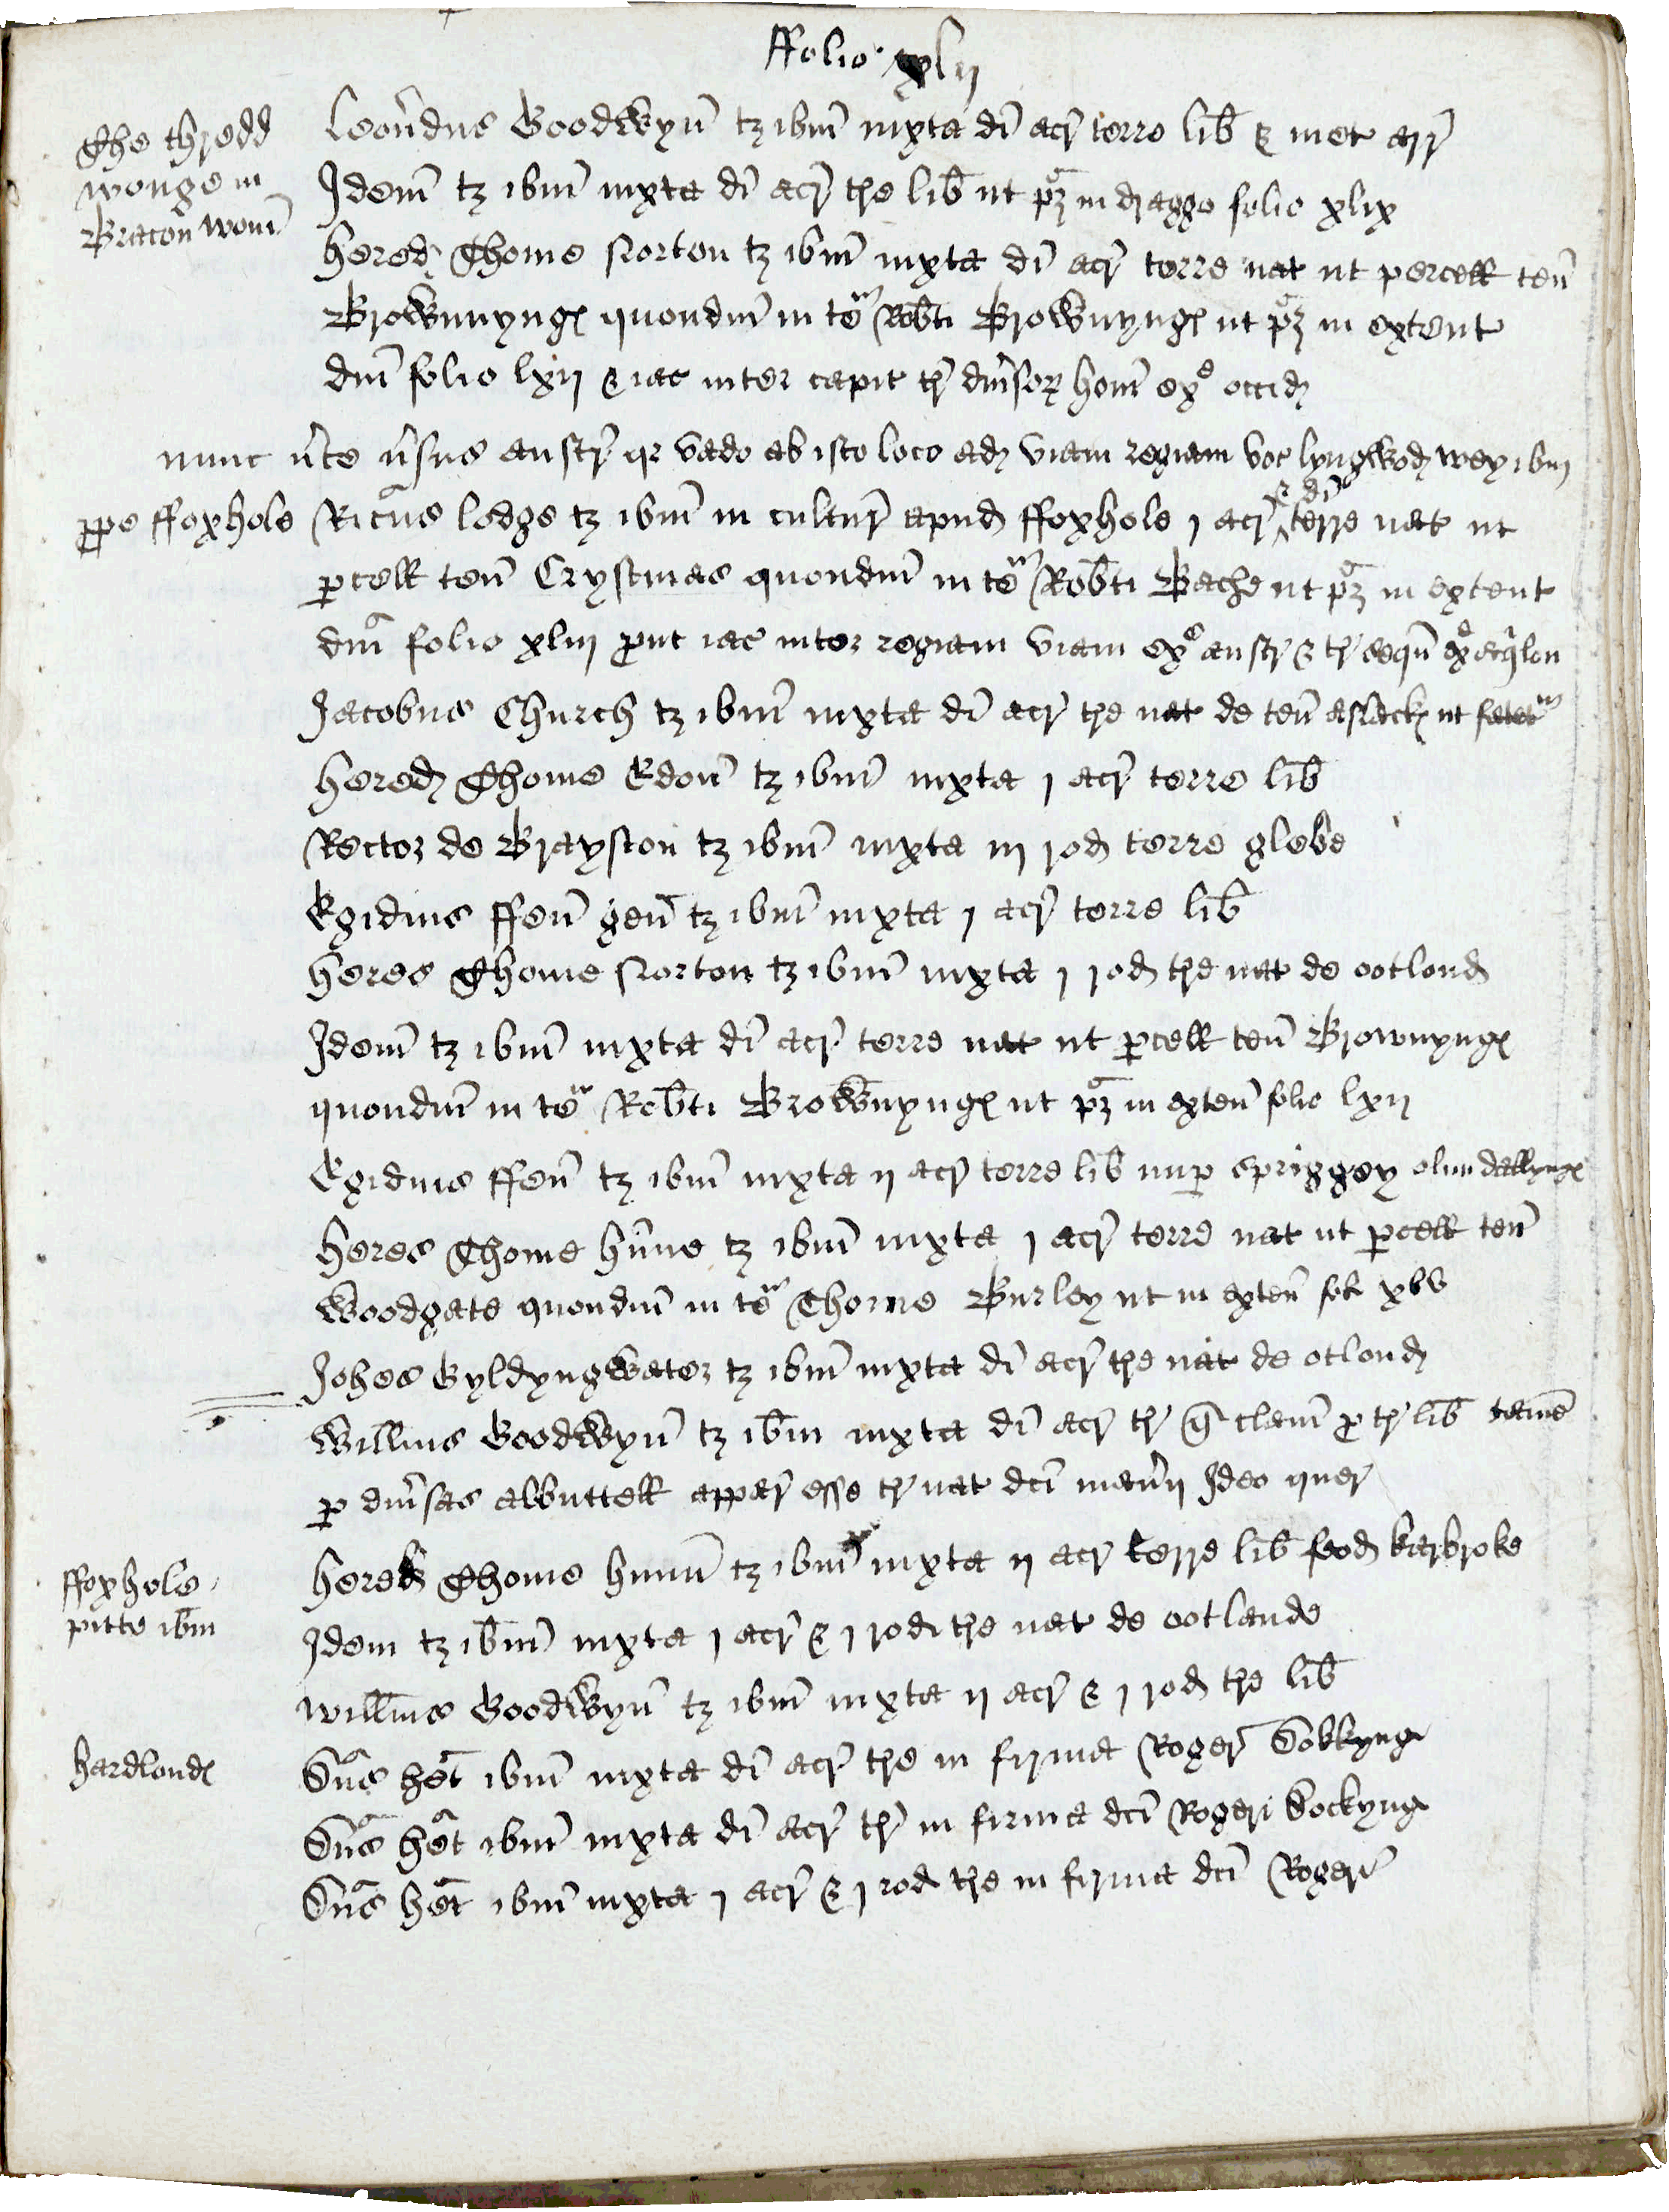 ffolio xlij
The thredd
wonge in
Bracon wonī
Leon̄dus Goodwyn̄ tȝ ibm̄ iuxta dī acr̄ terre lib̄ & met arr̄
Idem̄ tȝ ibm̄ iuxta dī acr̄ tre lib̄ ut pȝ in dragge folio xlix
hered̨ Thome Norton tȝ ibm̄ iuxta dī acr̄ terre nat ut percell ten̄
Brownnyngꝭ quondm̄ in teᵃ Rob̄ti Brownyngꝭ ut pȝ in extent
dm̄ folio lxij & iac inter capit tr̄ diũsoꝝ hom̄ exᵉ occid̨
nunc ũte ũsus austr̄ qr vado ab isto loco ad̨ viam regiam voc lyngwod̨ wey ibm̨
ꝓpe ffoxhole
Ric̄us ledge tȝ ibm̄ in cultur̄ apud̨ ffoxhole j acr̄ & dī terre nat ut
ꝑcell ten̄ Crystmas quondm̄ in teᵃ Rob̄ti Bache ut pȝ in extent
dm̄ folio xliij ꝓut iac inter regiam viam exᵉ austr̄ & tr̄ sequn̄ exᵉ aqͥlon
Jacobus Church tȝ ibm̄ iuxta dī acr̄ tre nat de ten̄ aslackꝭ ut fatetᵘʳ
hered̨ Thome Edon̄ tȝ ibm̄ iuxta j acr̄ terre lib̄
Rector de Brayston tȝ ibm̄ iuxta iij rod̨ terre glebe
Egidius ffen̄ gen̄ tȝ ibm̄ iuxta j acr̄ terre lib̄
heres Thome Norton tȝ ibm̄ iuxta j rod̨ tre nat de ootlond̨
Idem̄ tȝ ibm̄ iuxta dī acr̄ terre nat ut ꝑcell ten̄ Brownyngꝭ
quondm̄ in teᵃ Rob̄ti Brownyngꝭ ut pȝ in exten̄ folio lxij
Egidius ffen̄ tȝ ibm̄ iuxta ij acr̄ terre lib̄ nuꝑ spriggey olim dallyngꝭ
heres Thome hũne tȝ ibm̄ iuxta j acr̄ terre nat ut ꝑcell ten̄
Woodgate quondm̄ in teᵃ Thome Burley ut in exten̄ fol xlv
Johes Gyldyngwater tȝ ibm̄ iuxta dī acr̄ tre nat de otlond̨
Willm̄s Goodwyn̄ tȝ ib̄m iuxta dī acr̄ tr̄ q̄ clam̄ ꝓ tr̄ lib̄ tamē
ꝑ diũsas abbuttell appar̄ esse tr̄ nat dcī man̄ij Ideo quer̄
ffoxhole
pitte ib̄m
hered̨ Thome hunn̄ tȝ ibm̄ iuxta ij acr̄ terre lib̄ feod̨ kerbroke
Idem tȝ ib̄m iuxta j acr̄ & j rod̨ tre nat de ootlande
Willm̄s Goodwyn̄ tȝ ibm̄ iuxta ij acr̄ & j rod̨ tre lib̄
hardlondꝭ
Dn̄s het̄ ibm̄ iuxta dī acr̄ tre in firma Roger̄ Dokkyng
Dn̄s het̄ ibm̄ iuxta dī acr̄ tr̄ in firma dcī Rogeri Dockyng
Dn̄s het̄ ibm̄ iuxta j acr̄ & j rod̨ tre in firma dcī Roger̄